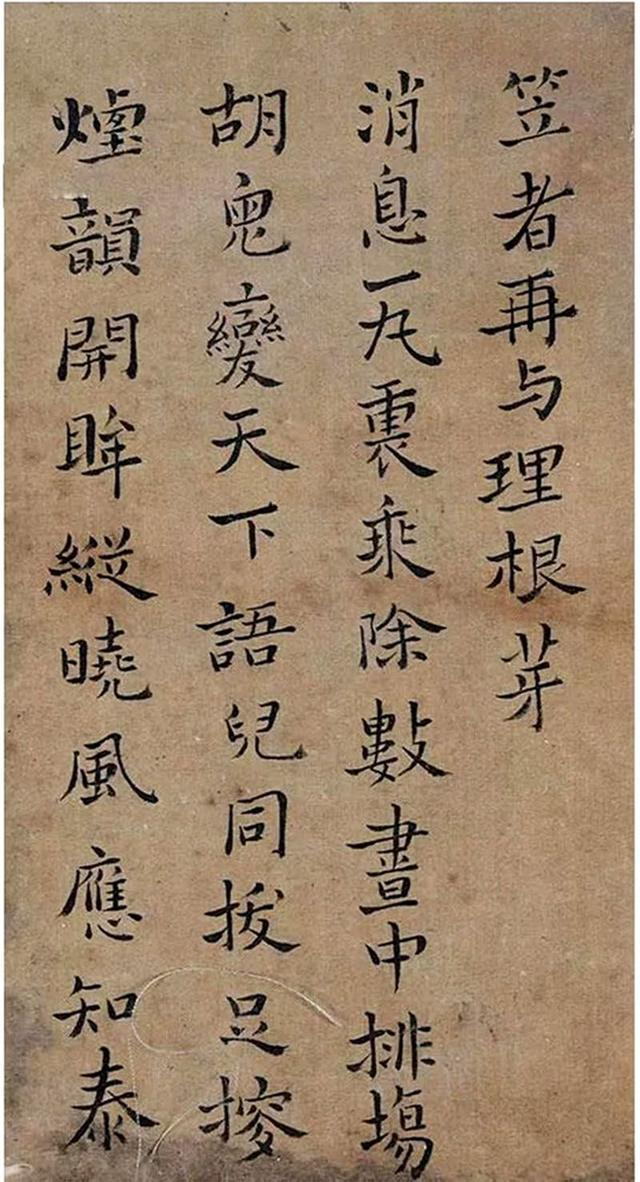 笠者再与理根芽
消息一丸裏乗除數畫中排塲
胡變天下語兒同拔足
煙韻開眸縱曉風應知泰